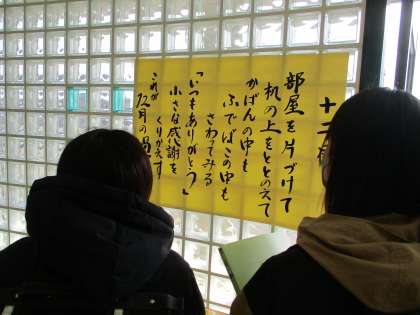 部屋を片づけて
机の上をととのえて
かばんの中も
ふでばこの中も
さわってみる
「いつもありがとう」
小さな感謝を
これが くりかえす
12月の